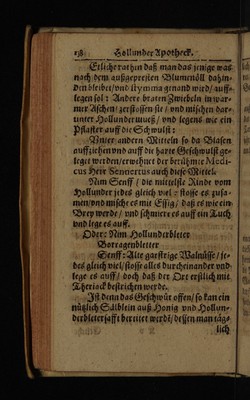 138 Hollunder Apotheck.
Etliche rathen daß man das jenige was
nach dem außgepresten Blumenöll dahin-
den bleibet / und stymma genand wird / auff-
legen sol: Andere braten Zwiebeln in war-
mer Aschen / zerstossen sie / und mischen dar-
unter Hollundermueß / und legens wie ein
Pflaster auff die Schwulst:
Unter andern Mitteln so da Blasen
auffziehen und auff die harte Geschwulst ge-
leget werden / erwehnet der berühmte Medi-
cus Herr Sennertus auch diese Mittel.
Nim Senff / die mittelste Rinde vom
Hollunder jedes gleich viel / stosse es zusa-
men / und mische es mit Essig / daß es wie ein
Brey werde / und schmiere es auff ein Tuch
und lege es auff.
Oder: Nim Hollunderbleter
Borragenbletter
Senff: Alte garstrige Walnüsse / je-
des gleich viel / stosse alles durcheinander und
lege es auff / doch daß der Ort erstlich mit
Theriack bestrichen werde.
Ist denn das Geschwür offen / so kan ein
nützlich Sälblein auß Honig und Hollun-
derblettersafft bereitet werdē / dessen man täg-
lich